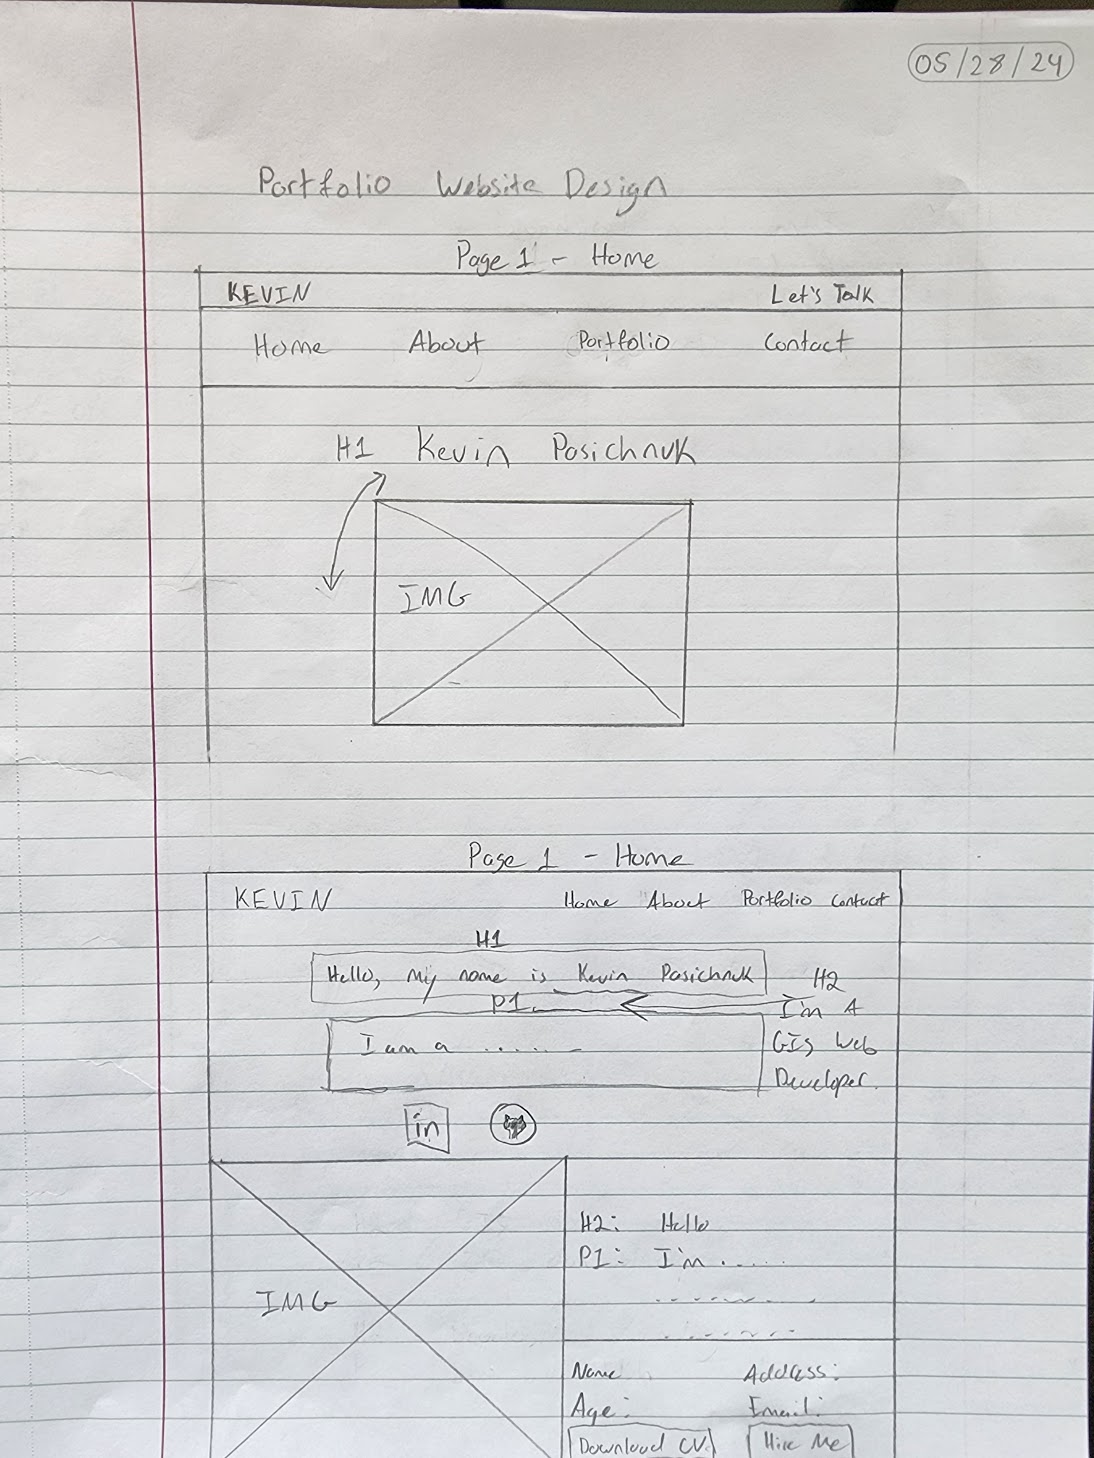 05/28/24
Portfolio Website Design
Page 1 - Home
KEVIN Let's Talk
Home About Portfolio Contact
H1 Kevin Pasichnuk
IMG
Page 1 - Home
KEVIN Home About Portfolio Contact
H1
Hello, My name is Kevin Pasichnuk
H2
P1.
I'm A
I am a ......
GIS Web
Developer.
in
H2: Hello
P1: I'm ......
IMG
Name Address:
Age: Email:
Download CV Hire Me